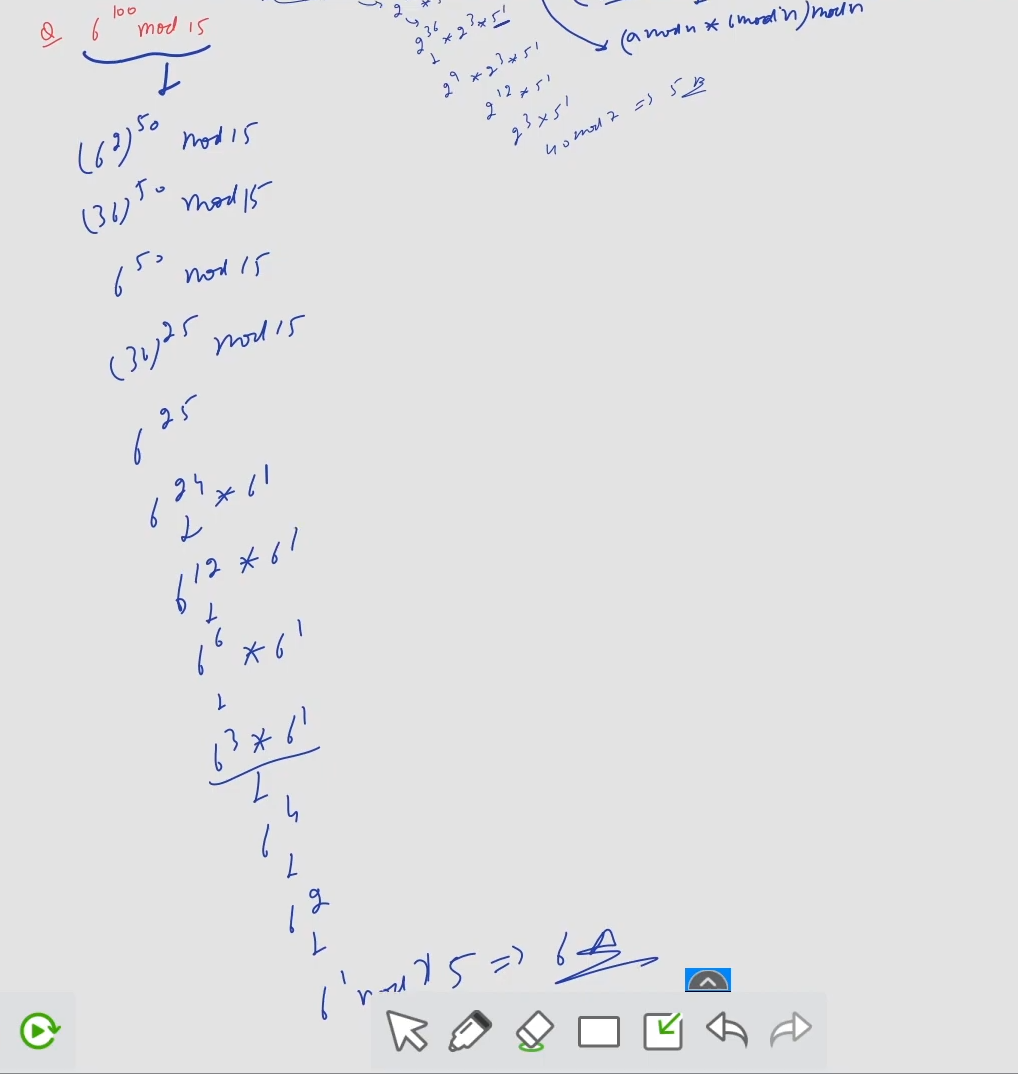 Q 6^100 mod 15
(6^2)^50 mod 15
(36)^50 mod 15
6^50 mod 15
(36)^25 mod 15
6^25
6^24 * 6^1
6^12 * 6^1
6^6 * 6^1
6^3 * 6^1
6^4
6^2
6^1 mod 15 => 6
2^36 * 2^3 * 5^1
2^9 * 2^3 * 5^1
2^12 * 5^1
2^3 * 5^1
40 mod 7 => 5